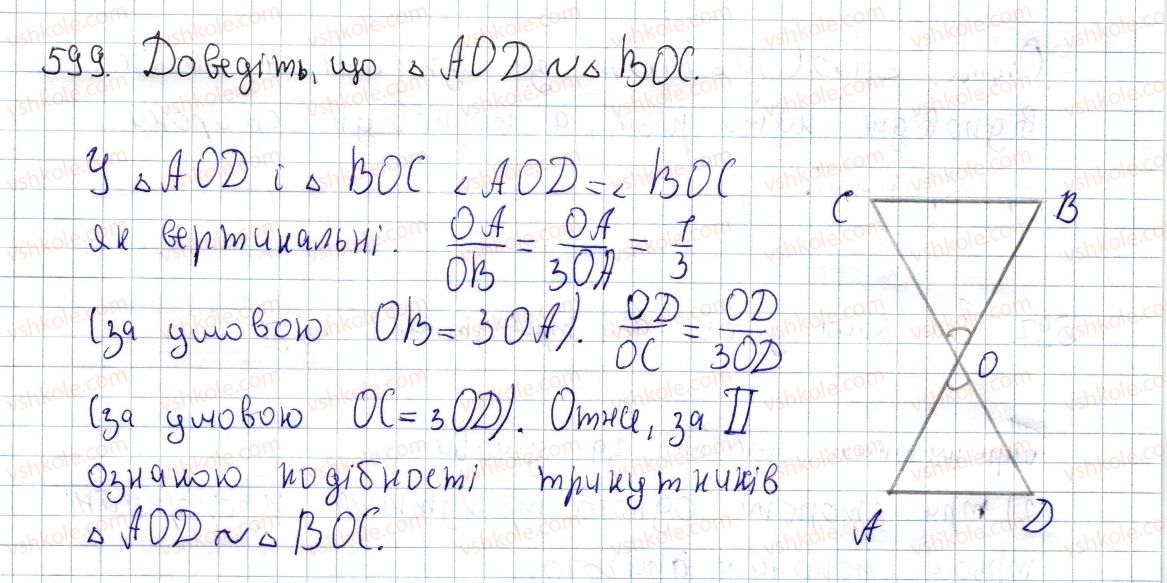 599. Доведіть, що △ AOD ~ △ BOC.
У △ AOD і △ BOC ∠ AOD = ∠ BOC
як вертикальні. OA/OB = OA/3OA = 1/3
(за умовою OB = 3OA). OD/OC = OD/3OD
(за умовою OC = 3OD). Отже, за II
ознакою подібності трикутників
△ AOD ~ △ BOC.
C B
O
A D